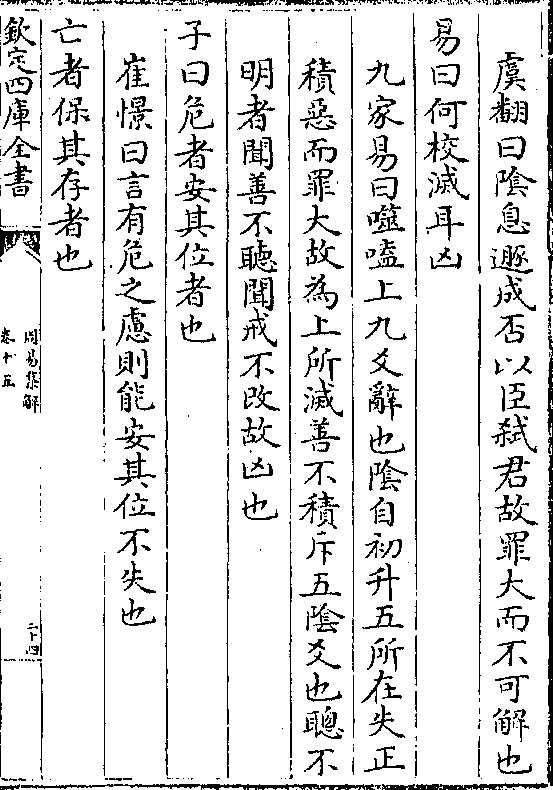 虞翻曰陰息遯成否以臣弑君故罪大而不可解也
易曰何校滅耳凶
九家易曰噬嗑上九爻辭也陰自初升五所在失正
積惡而罪大故為上所滅善不積斥五陰爻也聰不
明者聞善不聽聞戒不改故凶也
子曰危者安其位者也
崔憬曰言有危之慮則能安其位不失也
亡者保其存者也
欽定四庫全書
周易集解
卷十五
二十四